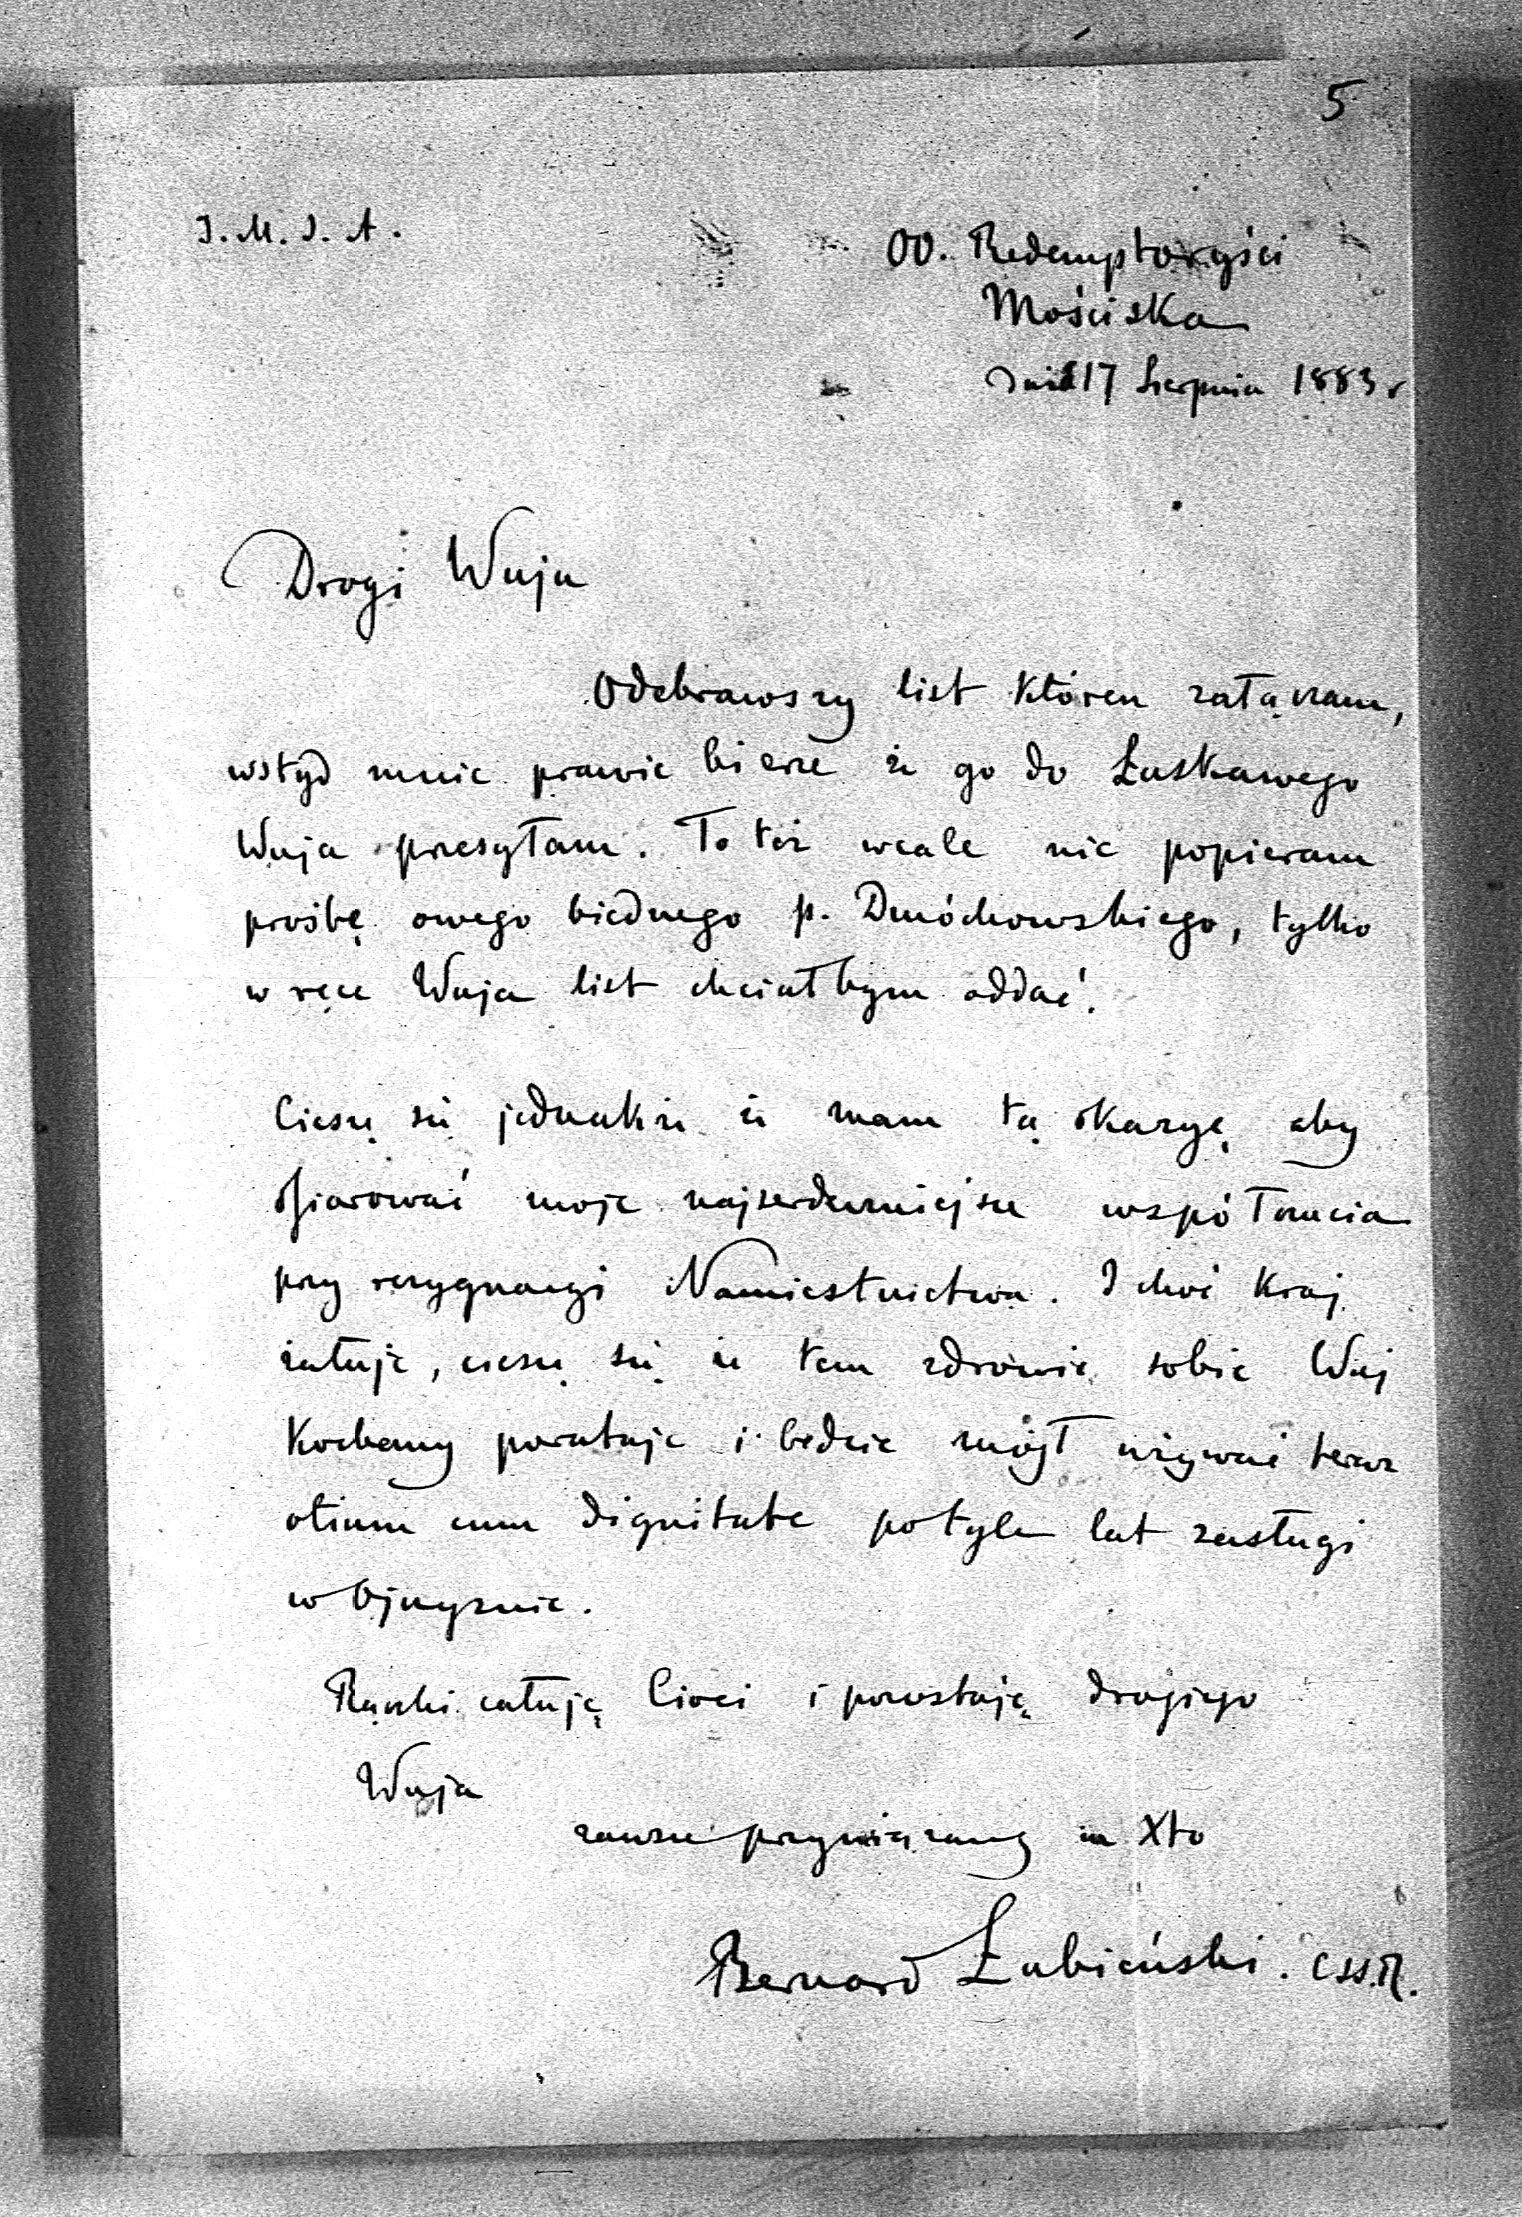 5
J. M. J. A.
OO. Redemptoryści
Mościska
Dnia 17 Sierpnia 1883 r
Drogi Wuju
Odebrawszy list któren załączam,
wstyd mnie prawie bierze że go do Łaskawego
Wuja przesyłam. To też wcale nie popieram
prośbę owego biednego p. Dmóchowskiego, tylko
w ręce Wuja list chciałbym oddać.
Cieszę się jednakże że mam tą okazyę aby
ofiarować moje najserdeczniejsze współczucia
przy rezygnacyi Namiestnictwa. I choć kraj
żałuje, cieszę się że tem zdrowie sobie Wuj
Kochany poratuje i będzie mógł używać teraz
otium cum dignitate po tylu lat zasługi
w Ojczyznie.
Rączki całuję Cioci i pozostaję drogiego
Wuja
zawsze przywiązany in Xto
Bernard Łubieński. CSS.R.